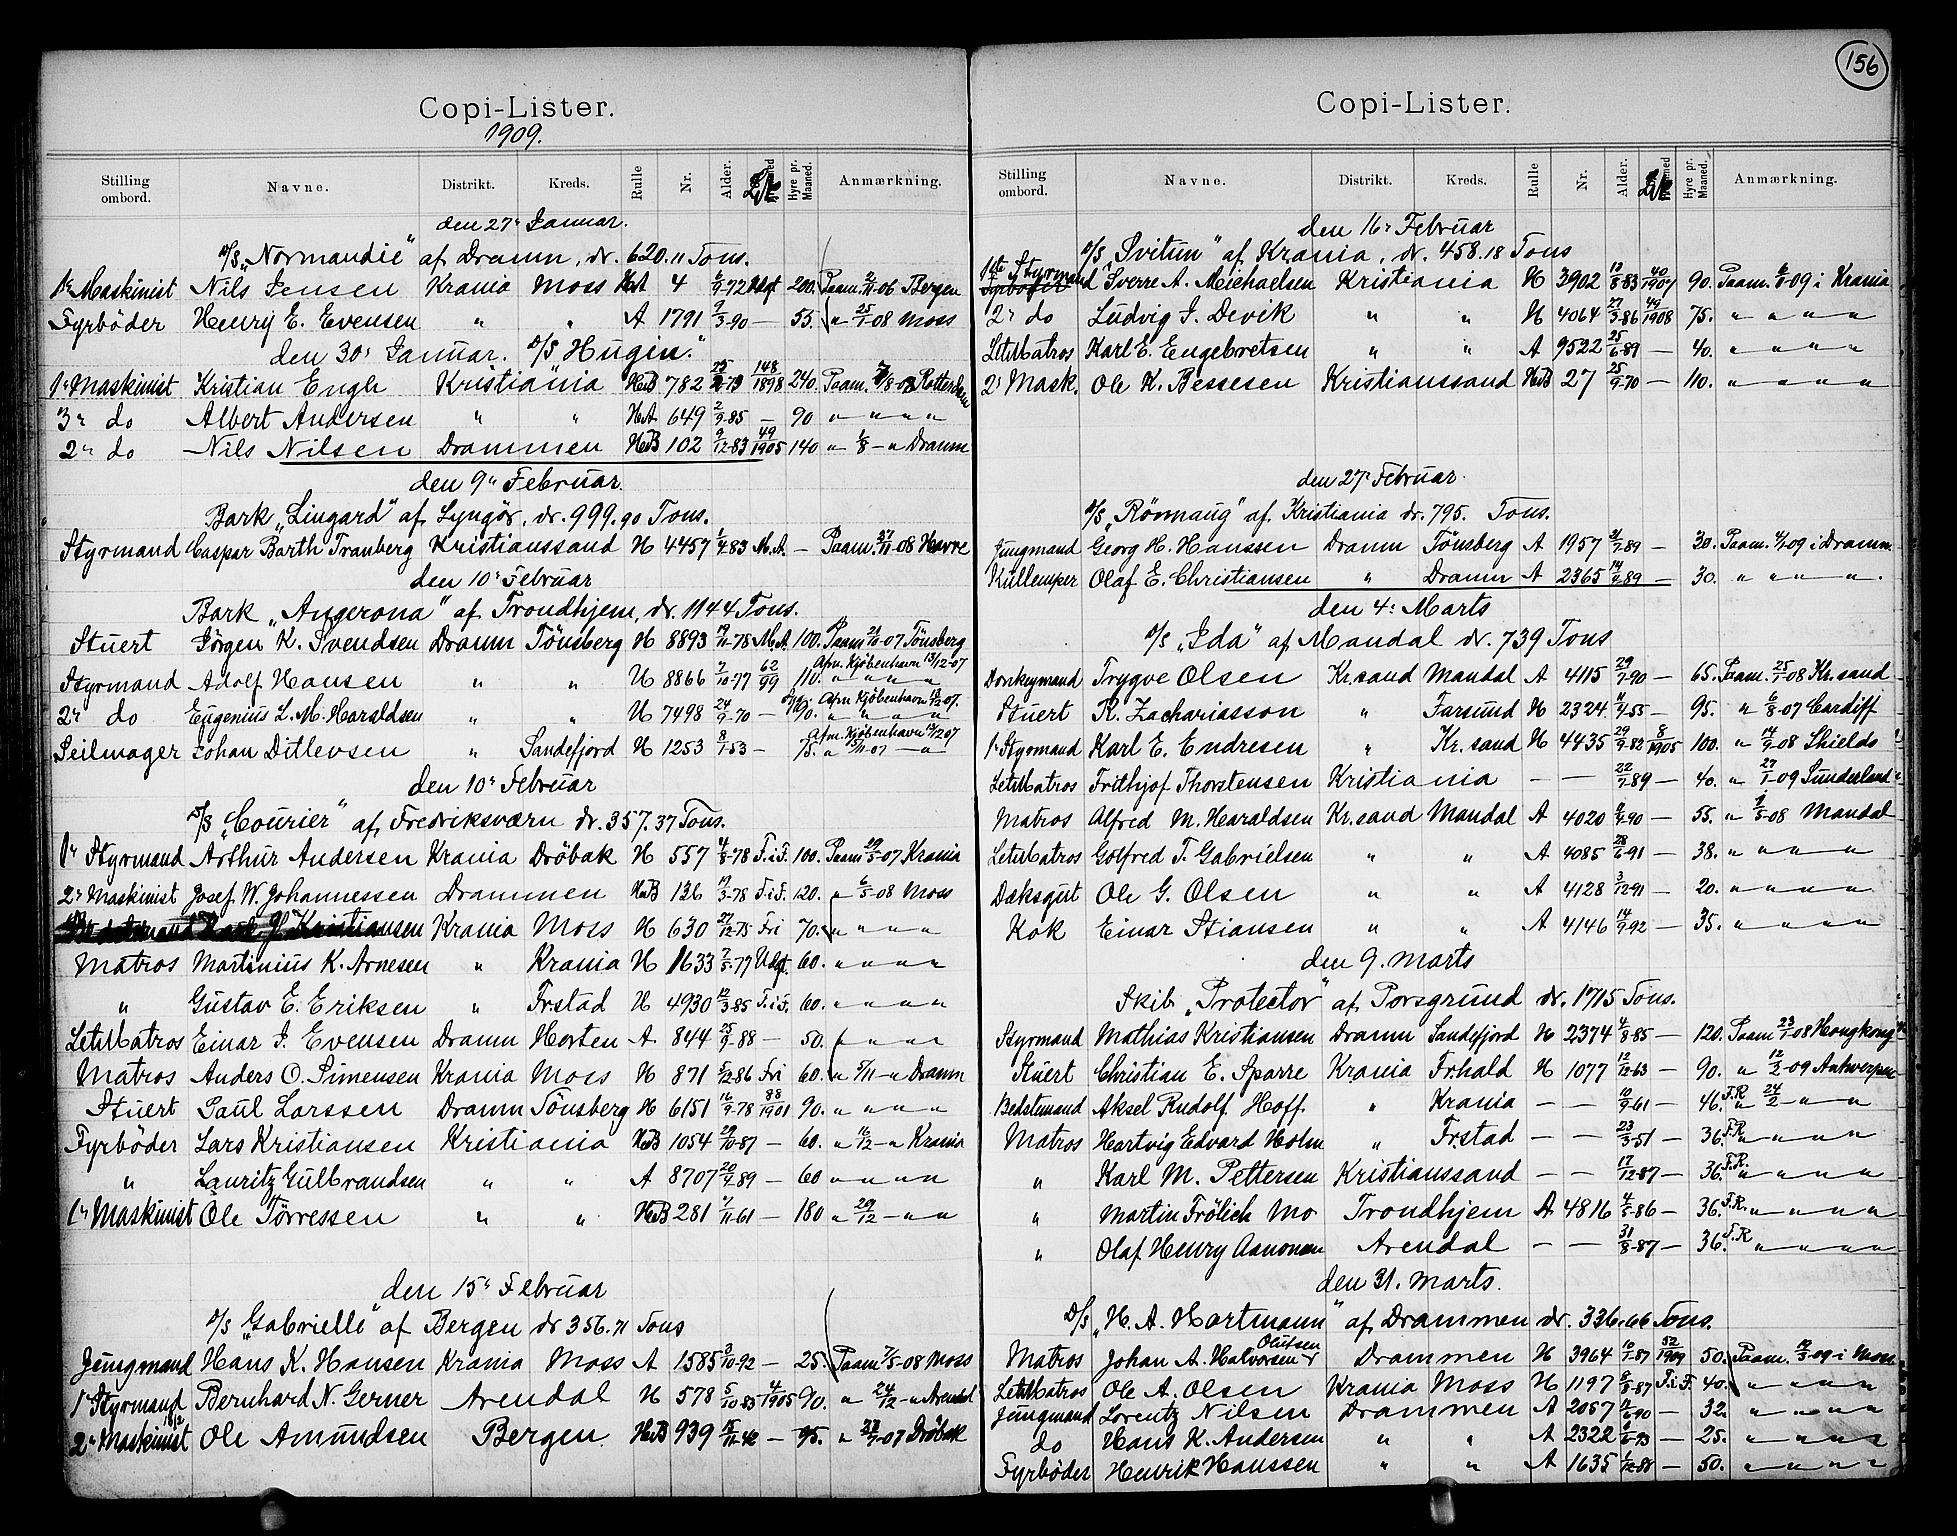 Copi-Lister.
1909.
Stilling ombord. Navne. Distrikt. Kreds. Rulle Nr. Alder. Hyre pr. Maaned. Anmærkning.
den 27' Januar.
D/S "Normandie" af Dramn, dr. 620.11 Tons.
1' Maskinist Nils Jensen Krania Moss 4 200. Paam. Bergen
Fyrböder Henry E. Evensen " " A 1791 — 55. " 25/1-08 Moss
den 30' Januar. D/S "Hugin."
1' Maskinist Kristian Engh Kristiania HuB 782 148/1898 240. Paam. Rotterdam
3' do Albert Andersen " " 649 2/9-85 — 90 " " " "
2' do Nils Nilsen Drammen HuB 102 9/12-83 49/1905 140 " 1/8 - " Dramn
den 9' Februar.
Bark "Lingard" af Lyngör, dr. 999.90 Tons.
Styrmand Caspar Barth Tranberg Kristianssand H 4457 1/4-83 M.A. — Paam. 27/11-08 Havre
den 10' Februar
Bark "Angerona" af Trondhjem, dr. 1144 Tons.
Stuert Jörgen K. Svendsen Dramn Tönsberg H 8893 19/11-78 M.A. 100. Paam. 21/11-07 Tönsberg
Afm. Kjöbenhavn 13/12-07
Styrmand Adolf Hansen " " H 8866 7/10-77 62/99 110. " " " "
Afm Kjöbenhavn 13/12-07.
2' do Eugenius L. M. Haraldsen " " H 7498 24/9-70 — 90. " " " "
Afm. Kjöbenhavn
Seilmager Johan Ditlevsen " Sandefjord H 1253 8/1-53 — 75. " 15/11-07 — "
den 10' Februar
D/S "Courier" af Fredriksværn dr. 357.37 Tons.
1' Styrmand Arthur Andersen Krania Dröbak H 557 4/8-78 F.i.F. 100. Paam 29/5-07 Krania
2' Maskinist Josef W. Johannessen Drammen HuB 136 19/3-78 F.i.F. 120. " 6/5-08 Moss
Kristiansen Krania Moss H 630 27/12-75 Fri 70. " " " "
Matros Martinius K. Arnesen " Krania H 1633 7/5-79 Udg. 60. " " " "
" Gustav E. Eriksen " Frstad H 4930 12/3-85 F.i.F. 60. " " " "
LetMatros Einar J. Evensen Dramn Horten A. 844 25/9-88 — 50. " " " "
Matros Anders O. Simensen Krania Moss H 871 5/12-86 Fri 60. " 5/11 - " Dramn
Stuert Paul Larssen Dramn Tönsberg H 6151 16/9-78 88/1901 90. " " " "
Fyrböder Lars Kristiansen Kristiania HuB 1054 29/10-87 — 60. " 16/12 - " Krania
" Lauritz Gulbrandsen " " A 8707 20/9-89 — 60 " " " "
1' Maskinist Ole Törressen " " HuB 281 7/11-61 — 180 " 29/12 - " "
den 15' Februar
D/S "Gabrielle" af Bergen dr 356.71 Tons
Jungmand Hans K. Hansen Krania Moss A 1585 3/10-92 — 25. Paam 7/5-08 Moss
1' Styrmand Bernhard N. Gerner Arendal H 578 5/10-83 4/1905 90. " 24/12 - " Arendal
2' Maskinist Ole Amundsen Bergen. HuB 939 — 95. " Dröbak
156
Copi-Lister.
Stilling ombord. Navne. Distrikt. Kreds. Rulle Nr. Alder. Hyre pr. Maaned. Anmærkning.
den 16' Februar
D/S "Svitun" af Krania, dr. 458.18 Tons
1ste Styrmand Sverre A. Michaelsen Kristiania H 3902 90. Paam. i Krania
2' do Ludvig J. Devik " " H 4064 27/3-86 49/1908 75. " " " "
LetMatros Karl E. Engebretsen " " A 9522 25/6-89 — 40. " " " "
2' Mask. Ole K. Bessesen Kristianssand HuB 27 25/9-70 — 110. " " " "
den 27' Februar.
D/S "Rönnaug" af Kristiania dr. 795. Tons.
Jungmand Georg H. Hanssen Dramn Tönsberg A 1957 — 30. Paam. i Dramn.
Kullemper Olaf E. Christiansen " Dramn A 2365 — 30. " " " ".
den 4' Marts
D/S "Ida" af Mandal dr. 739 Tons
Donkeymand Trygve Olsen Kr.sand Mandal A 4115 29/7-90 — 65. Paam. 25/1-08 Kr.sand
Stuert R. Zachariasson " Farsund H 2324 — 95. " 6/8-07 Cardiff
1' Styrmand Karl E. Endresen " Kr.sand H 4435 29/9-82 8/1905 100. " 14/9-08 Shields
LetMatros Frithjof Thorstensen Kristiania — — 22/7-89 — 40. " 27/1-09 Sunderland
Matros Alfred M. Haraldsen Kr.sand Mandal A 4020 — 55. " Mandal
LetMatros Golfred T. Gabrielsen " " A 4085 28/6-91 — 38. " " " "
Daksgut Ole G. Olsen " " A 4128 3/12-91 — 20. " " " "
Kok Einar Stiansen " " A 4146 14/9-92 — 35. " " " "
den 9. marts
Skib "Protector" af Porsgrund dr. 1715 Tons.
Styrmand Mathias Kristiansen Dramn Sandefjord H 2374 4/8-85 — 120. Paam 23/1-08 Hongkong
Stuert Christian E. Sparre Krania Frhald H 1077 12/12-63 — 90. " 12/2-09 Antwerpen
Bedstemand Aksel Rudolf Hoff " Krania — — 10/9-61 — 46. F.R. " 24/2 — " "
Matros Hartvig Edvard Holm " Frstad — — 23/3-51 — 36. F.R. " " " "
" Karl M. Pettersen Kristianssand — — 17/12-87 — 36. F.R. " " " "
" Martin Frölich Mo Trondhjem A 4816 4/5-86 — 36. F.R. " " " "
" Olaf Henry Aanonsen Arendal — — 31/8-87 — 36. F.R " " " "
den 31. marts.
D/S "H. A. Hartmann" af Drammen dr. 336.66 Tons.
Olutsen
Matros Johan A. Halvorsen Drammen H 3964 52/1909 50. Paam. i Moss
LetMatros Ole A. Olsen Krania Moss H 1197 F.i.F. 40. " " " "
Jungmand Lorentz Nilsen Drammen A 2057 — 32. " " " "
do Hans K. Andersen " " A 2322 — 25. " " " "
Fyrböder Henrik Hanssen " " A 1635 — 50. " " " "